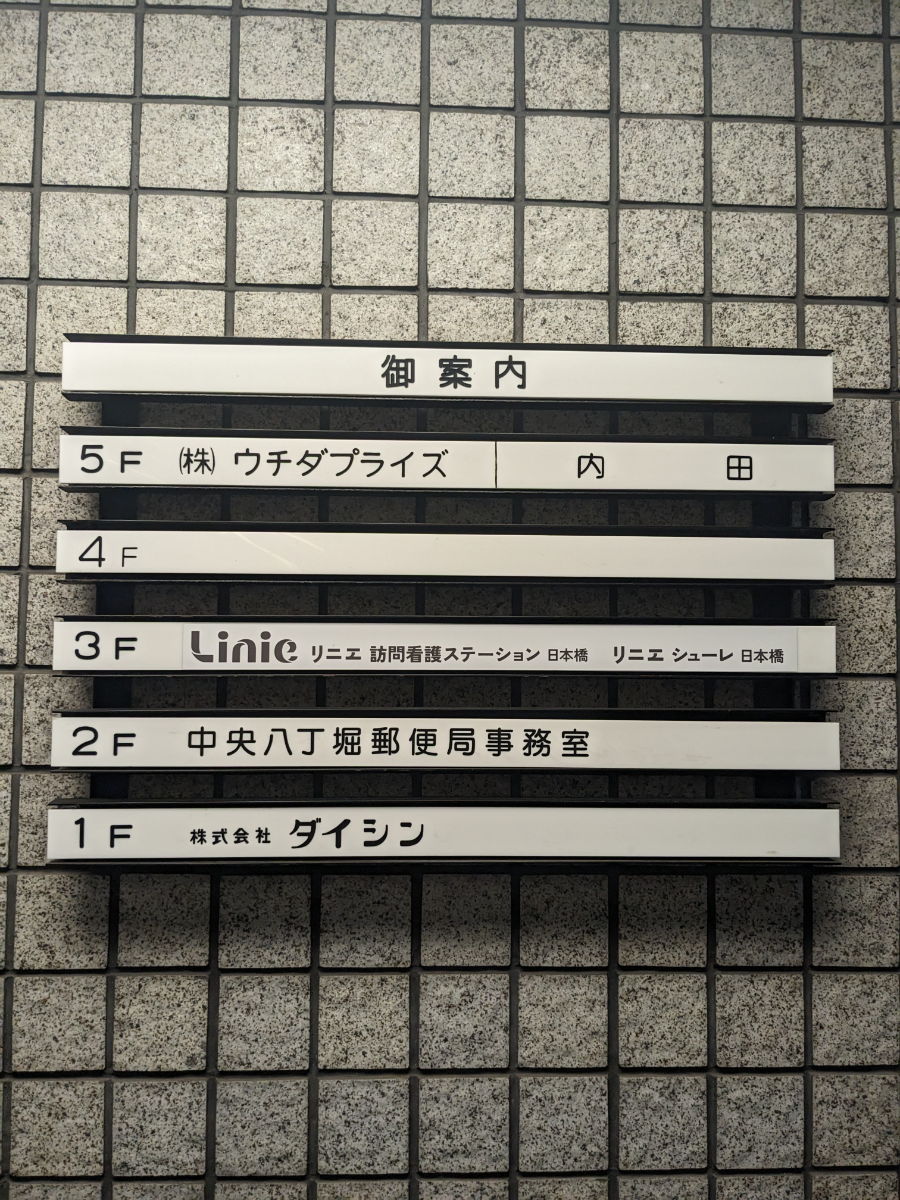 御案内
5F ㈱ ウチダプライズ 内田
4F
3F Linie リニエ 訪問看護ステーション 日本橋 リニエ シューレ 日本橋
2F 中央八丁堀郵便局事務室
1F 株式会社 ダイシン